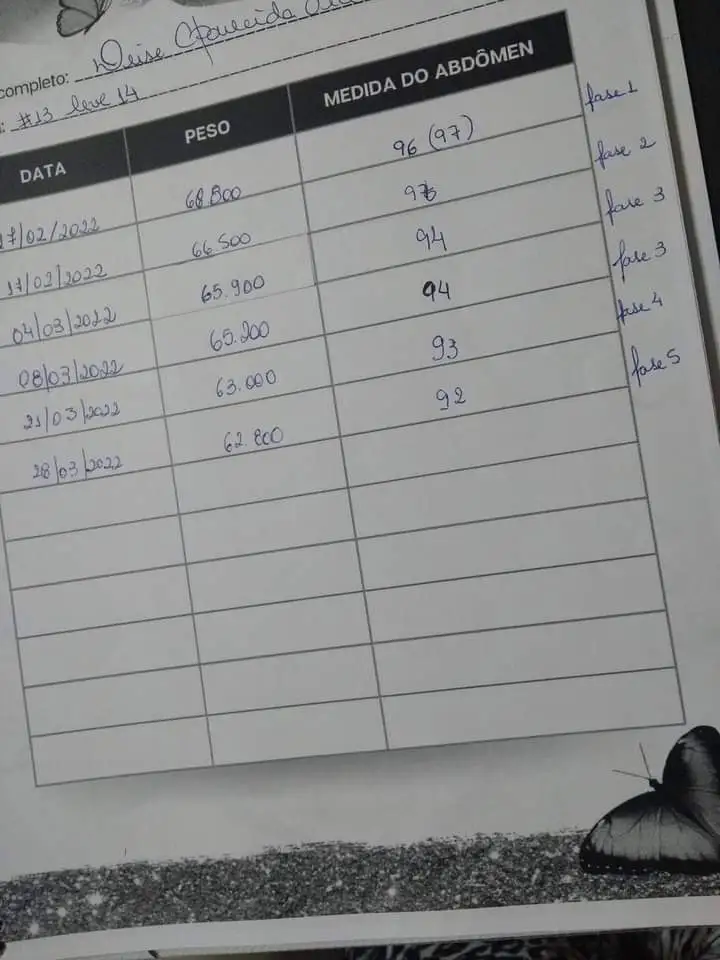 completo: Deise Aparecida
: #13 leve 14
DATA PESO MEDIDA DO ABDÔMEN
17/02/2022 68.800 96 (97) fase 1
17/02/2022 66.500 fase 2
04/03/2022 65.900 94 fase 3
08/03/2022 65.200 94 fase 3
21/03/2022 63.000 93 fase 4
28/03/2022 62.800 92 fase 5